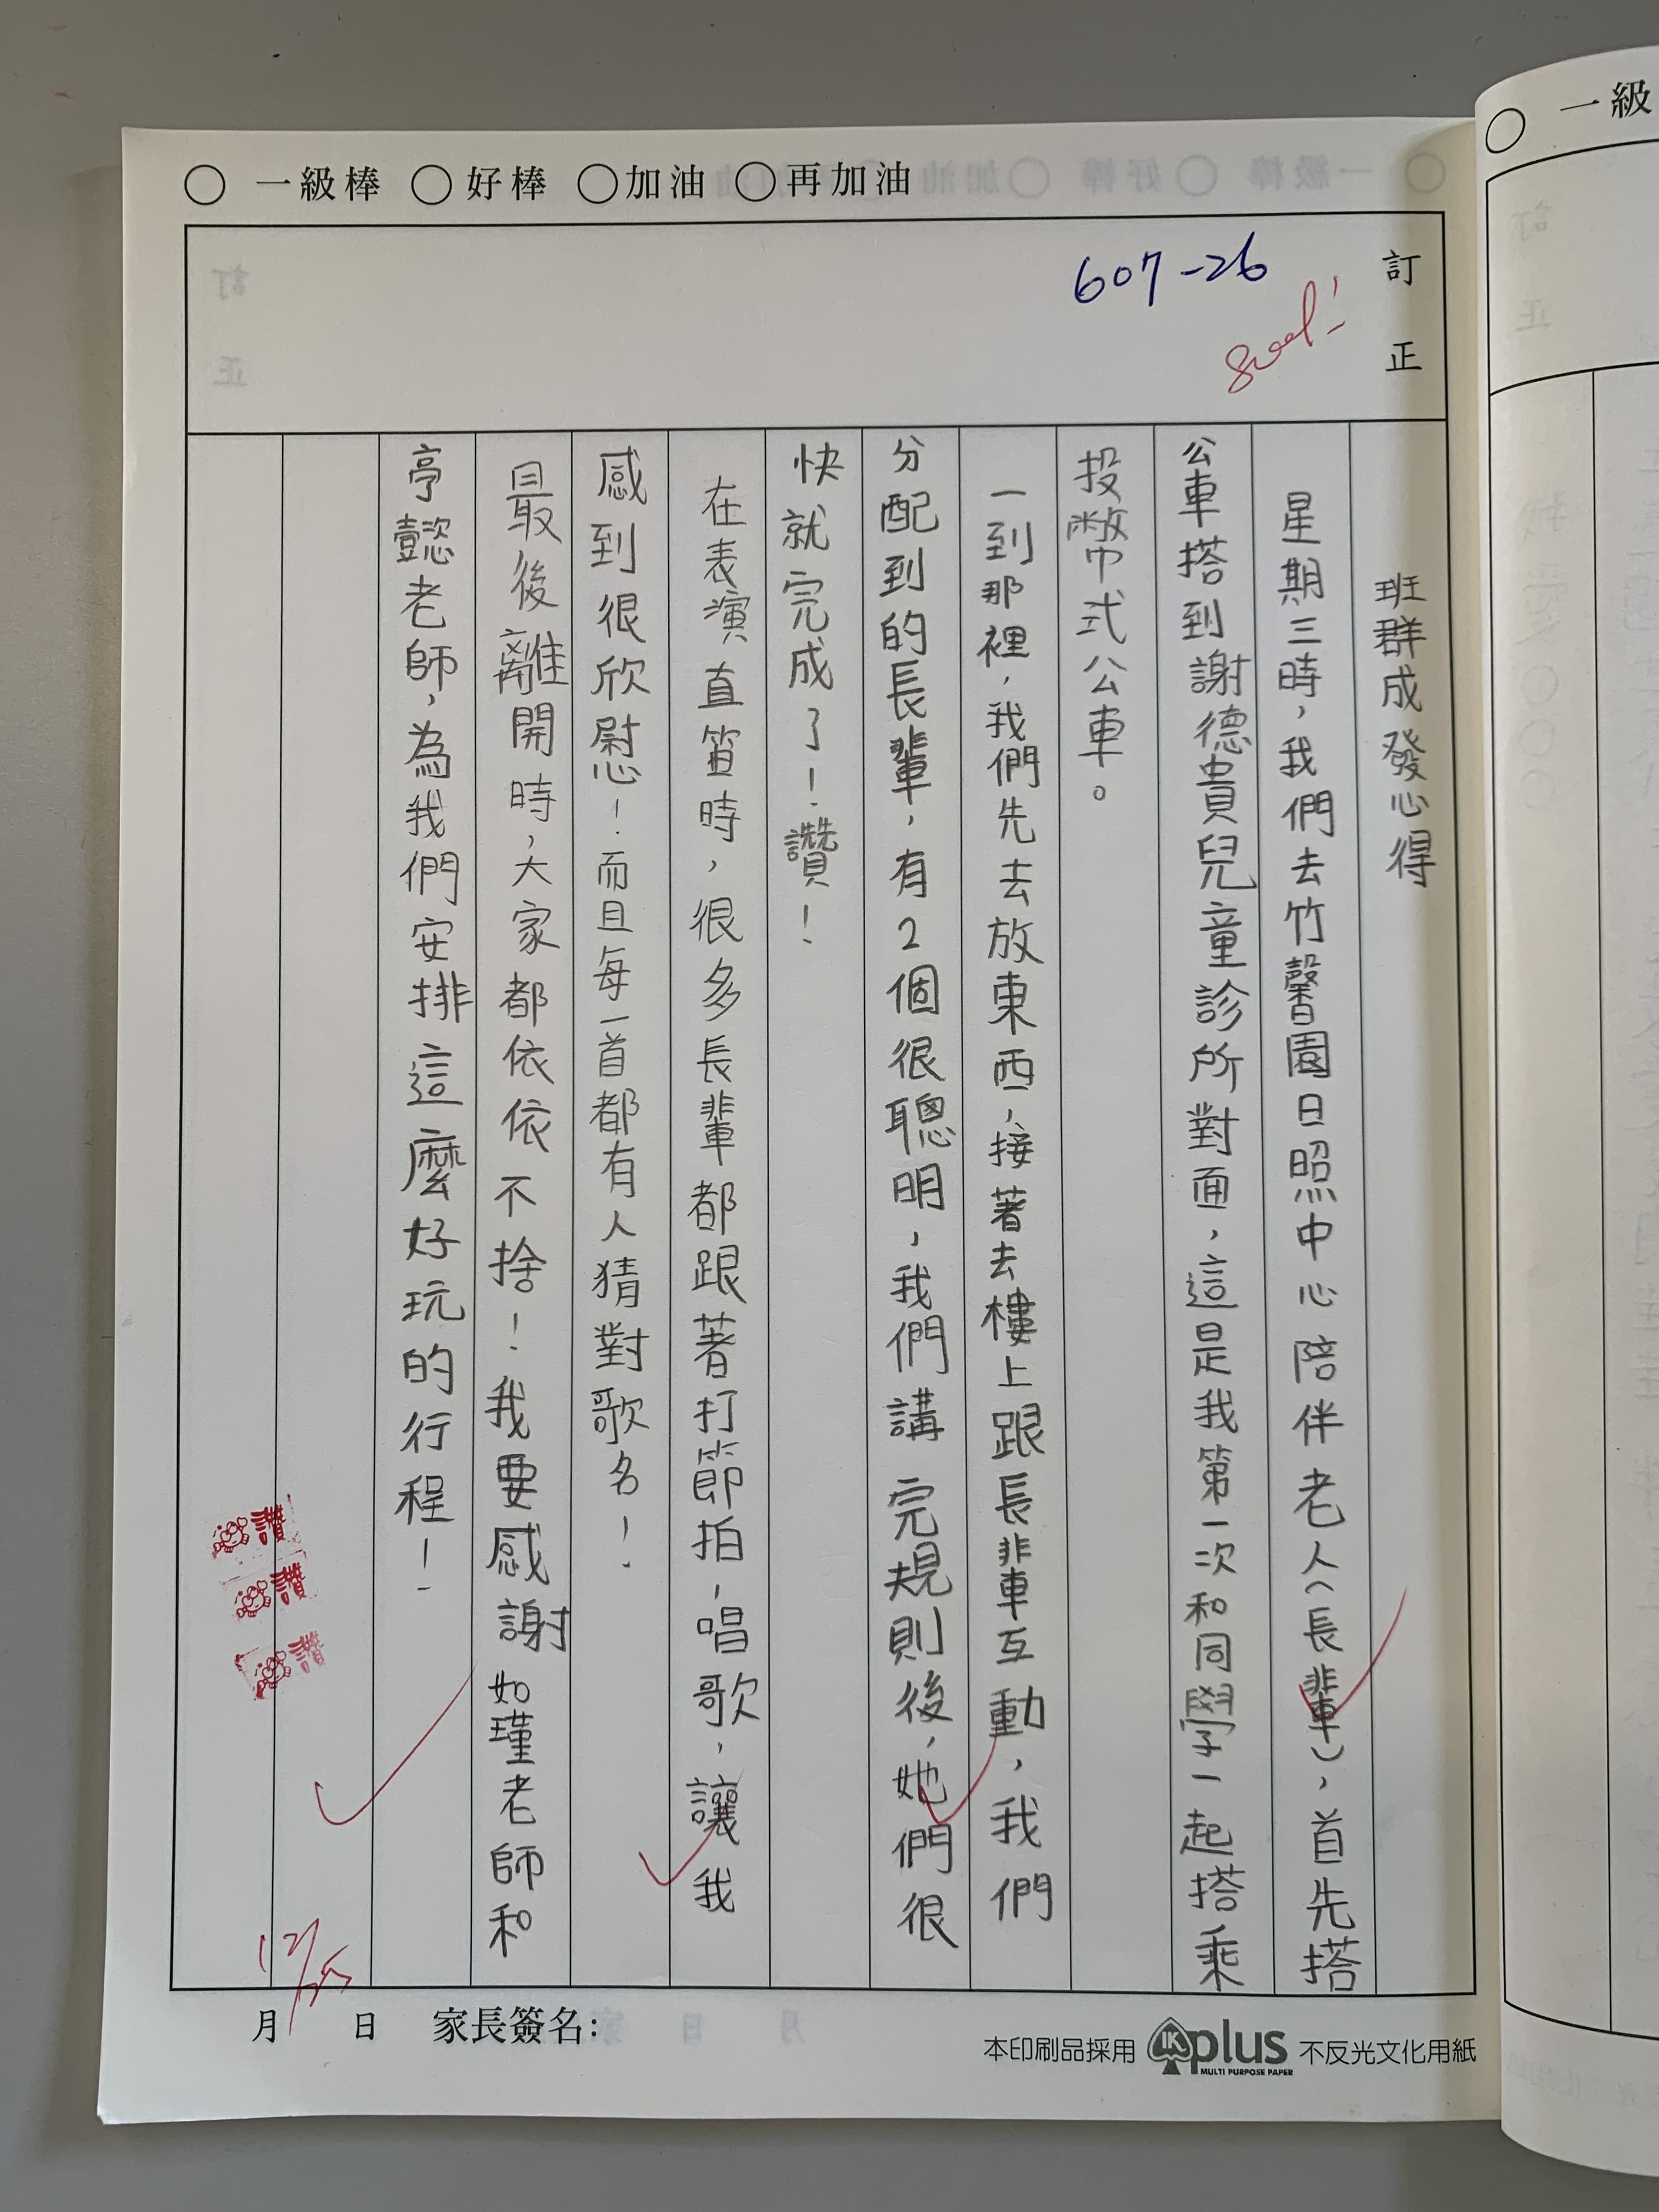 ○ 一級棒 ○好棒 ○加油 ○再加油
訂正
607-26
Good!
班群成發心得
星期三時，我們去竹馨園日照中心陪伴老人（長輩），首先搭
公車搭到謝德貴兒童診所對面，這是我第一次和同學一起搭乘
投幣式公車。
一到那裡，我們先去放東西，接著去樓上跟長輩互動，我們
分配到的長輩，有2個很聰明，我們講完規則後，她們很
快就完成了！讚！
在表演直笛時，很多長輩都跟著打節拍，唱歌，讓我
感到很欣慰！而且每一首都有人猜對歌名！
最後離開時，大家都依依不捨！我要感謝如瑾老師和
亭懿老師，為我們安排這麼好玩的行程！
讚
讚
讚
12/25
月 日 家長簽名：
本印刷品採用 IK plus MULTI PURPOSE PAPER 不反光文化用紙
○ 一級